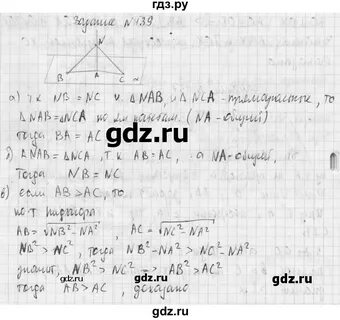 гдз.ру
Задание №139
N
B A C
а) т.к NB = NC и ΔNAB, и ΔNCA - прямоугольные, то
ΔNAB = ΔNCA по катетам. (NA - общий)
тогда BA = AC
ΔNAB = ΔNCA, т.к AB = AC, а NA - общий,
Тогда NB = NC
в) если AB > AC, то
по т Пифагора
AB = √NB² - NA² , AC = √NC² - NA²
NB² > NC², тогда NB² - NA² > NC² - NA²
значит, NB² > NC² → AB² > AC²
тогда AB > AC, доказано
gdz.ru
gdz.ru
gdz.ru